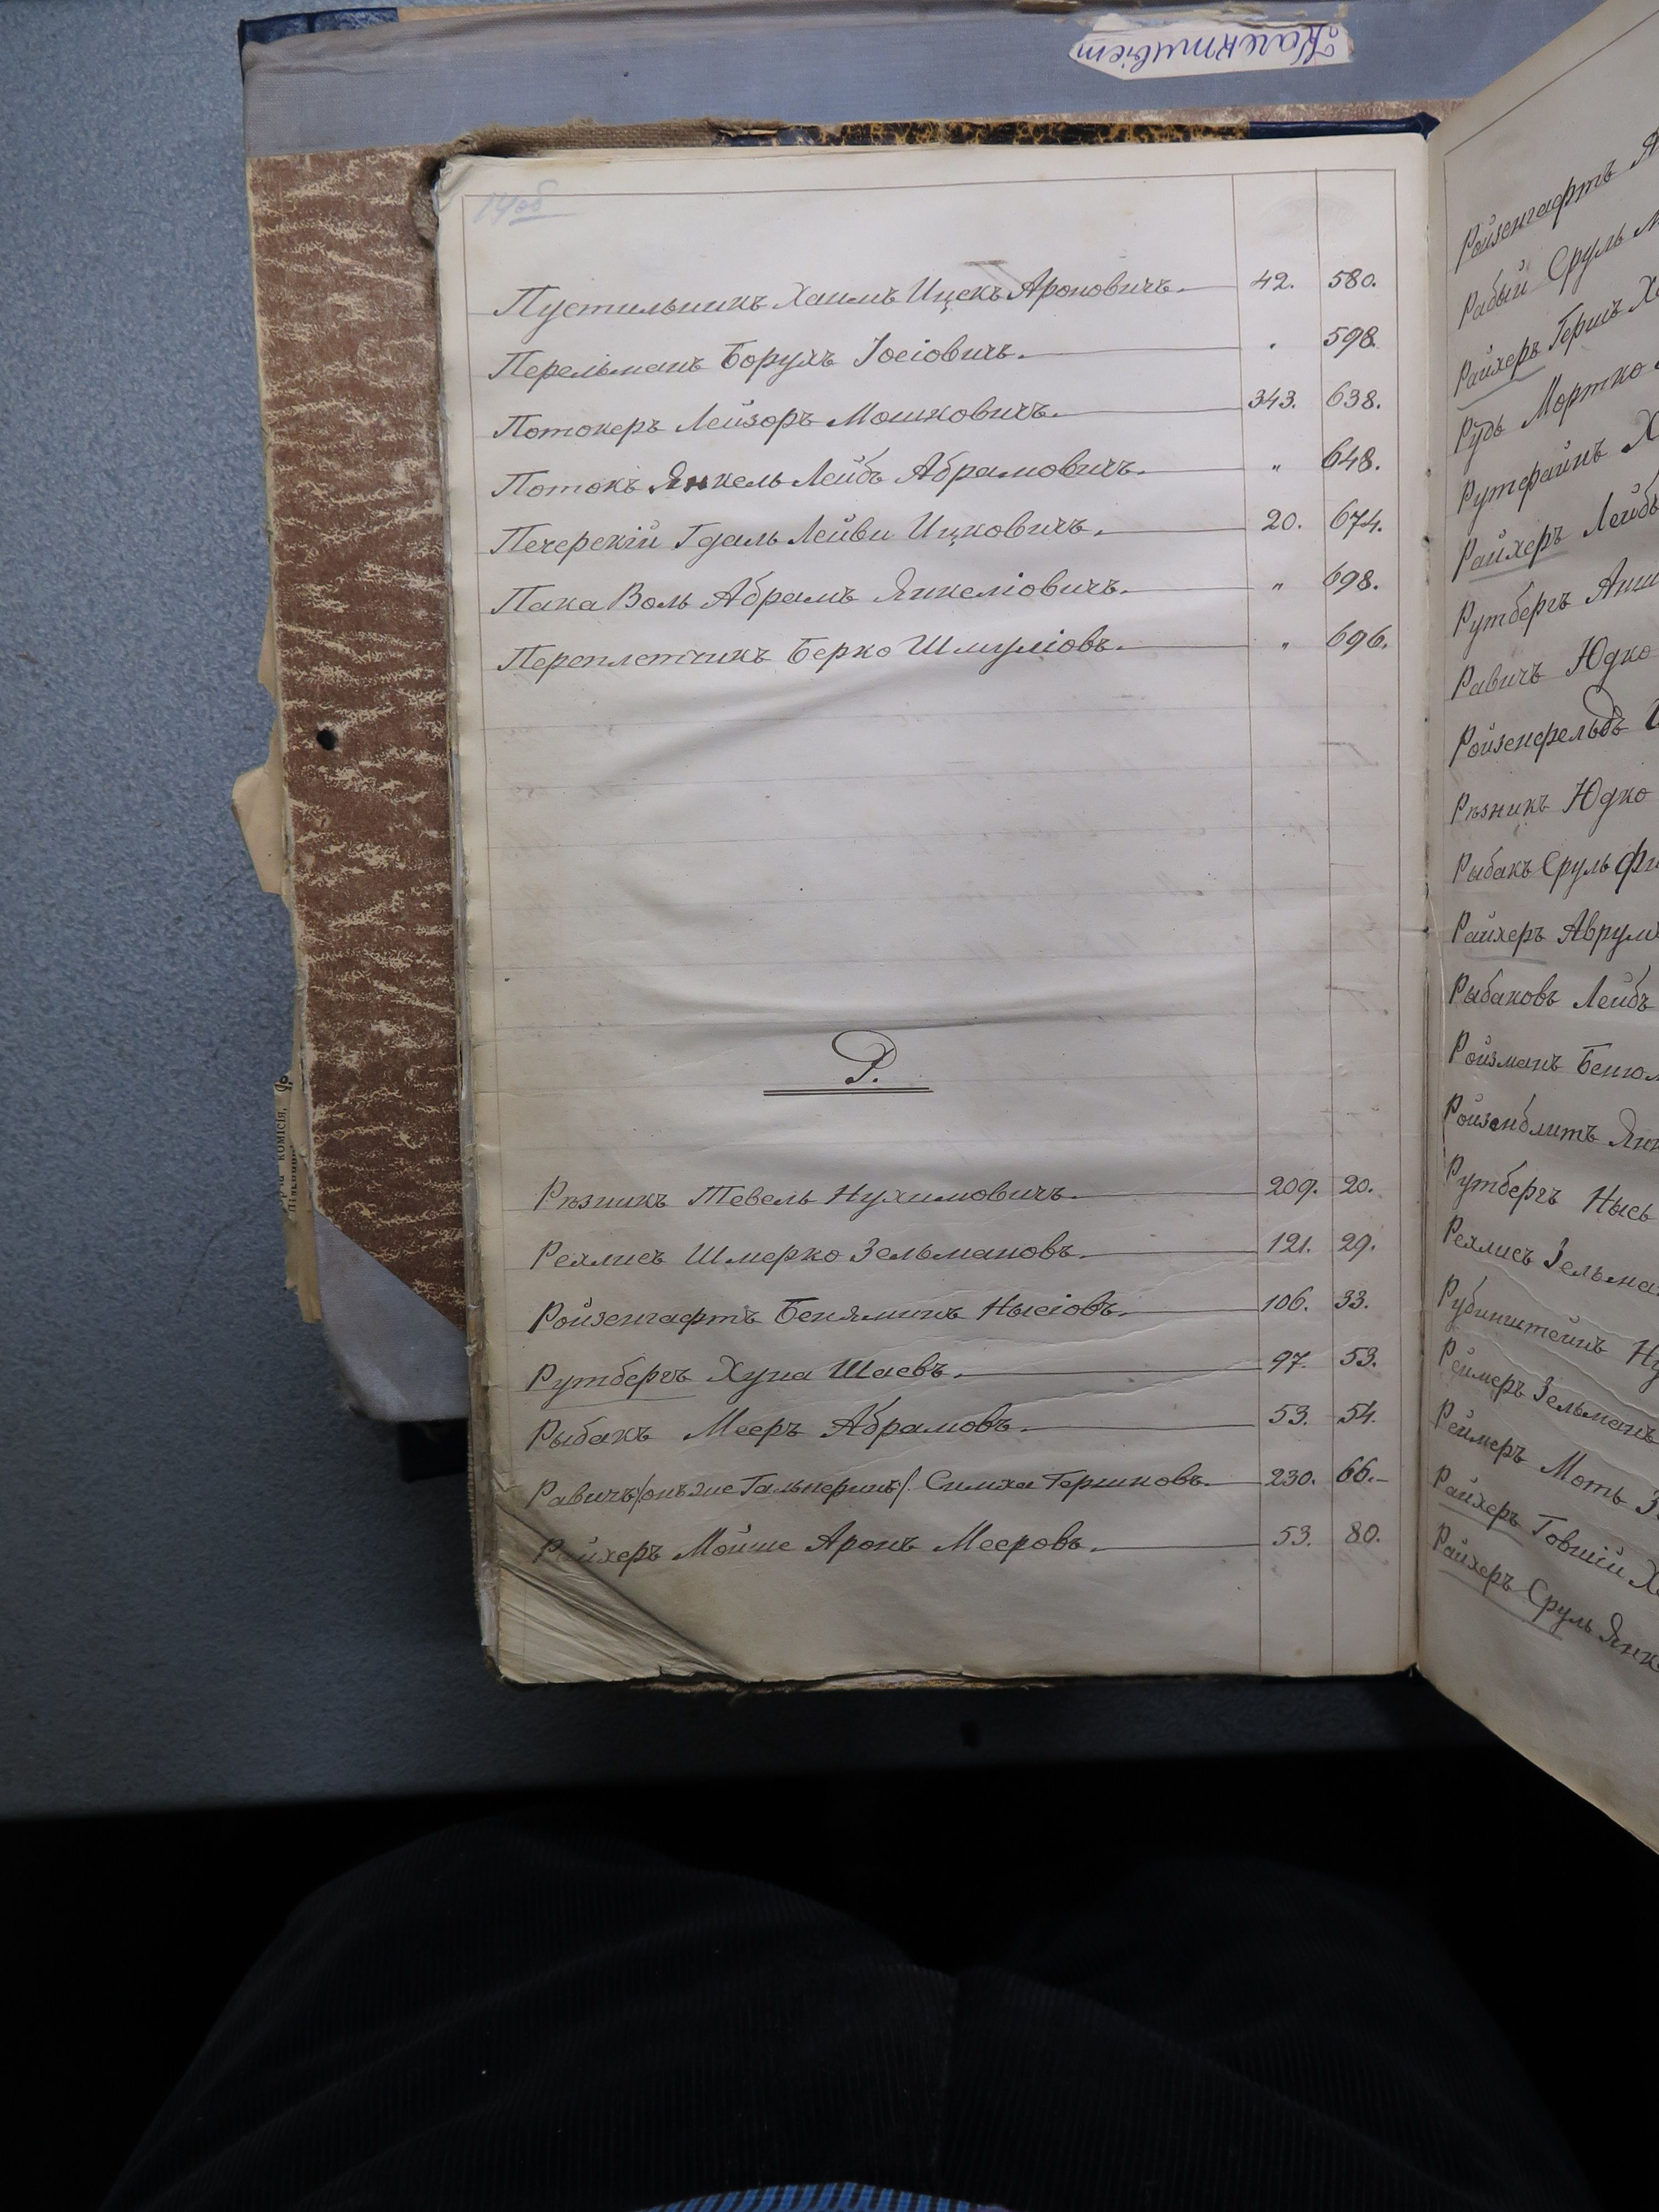 14об
Пустильникъ Хаимъ Ицекъ Ароновичъ. 42. 580.
Перельманъ Борухъ Іосіовичъ. . 598.
Потокеръ Лейзоръ Мошковичъ. 343. 638.
Потокъ Янкель Лейбъ Абрамовичъ. " 648.
Печерскій Гдаль Лейви Ицковичъ. 20. 674.
Пака Воль Абрамъ Янкеліовичъ. " 698.
Переплетчикъ Берко Шмуліовъ. " 696.
Р.
Рѣзникъ Тевель Нухимовичъ. 209. 20.
Реялисъ Шмерко Зельмановъ. 121. 29.
Ройзенгафтъ Беняминъ Нысіовъ. 106. 33.
Рутбергъ Хуна Шаевъ. 97. 53.
Рыбакъ Мееръ Абрамовъ. 53. 54.
Равичъ /онъ же Гальперинъ/. Симха Гершковъ. 230. 66.
Райхеръ Мойше Аронъ Мееровъ. 53. 80.
Ройзенгафтъ
Рабый Сруль
Райхеръ Гершъ
Рудь Мортко
Рутфайнъ
Райхеръ Лейбъ
Рутбергъ
Равичъ Юдко
Ройзенфельдъ
Рѣзникъ Юдко
Рыбакъ Сруль
Райхеръ Аврумъ
Рыбаковъ Лейбъ
Ройзманъ
Ройзенблитъ
Рутбергъ Нысь
Реялисъ
Рубинштейнъ
Реймеръ Зельманъ
Реймеръ Моть
Райхеръ Товшій
Райхеръ Сруль
комісія,